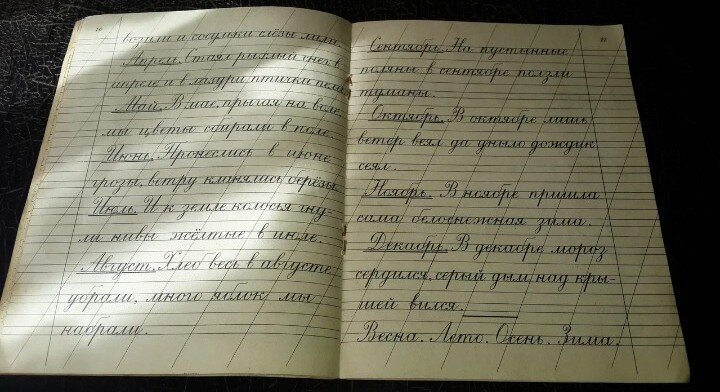 20
возили и сосульки слёзы лили.
Апрель. Стаял рыхлый снег в
апреле и в лазури птички пели.
Май. В мае, прыгая на воле,
мы цветы сбирали в поле.
Июнь. Пронеслись в июне
грозы, ветру кланялись берёзы.
Июль. И к земле колосья гну-
ли нивы жёлтые в июле.
Август. Хлеб весь в августе
убрали, много яблок мы
набрали.
Сентябрь. На пустынные
поляны в сентябре ползли
туманы.
Октябрь. В октябре лишь
ветер веял да уныло дождик
сеял.
Ноябрь. В ноябре пришла
сама белоснежная зима.
Декабрь. В декабре мороз
сердился, серый дым над кры-
шей вился.
Весна. Лето. Осень. Зима.